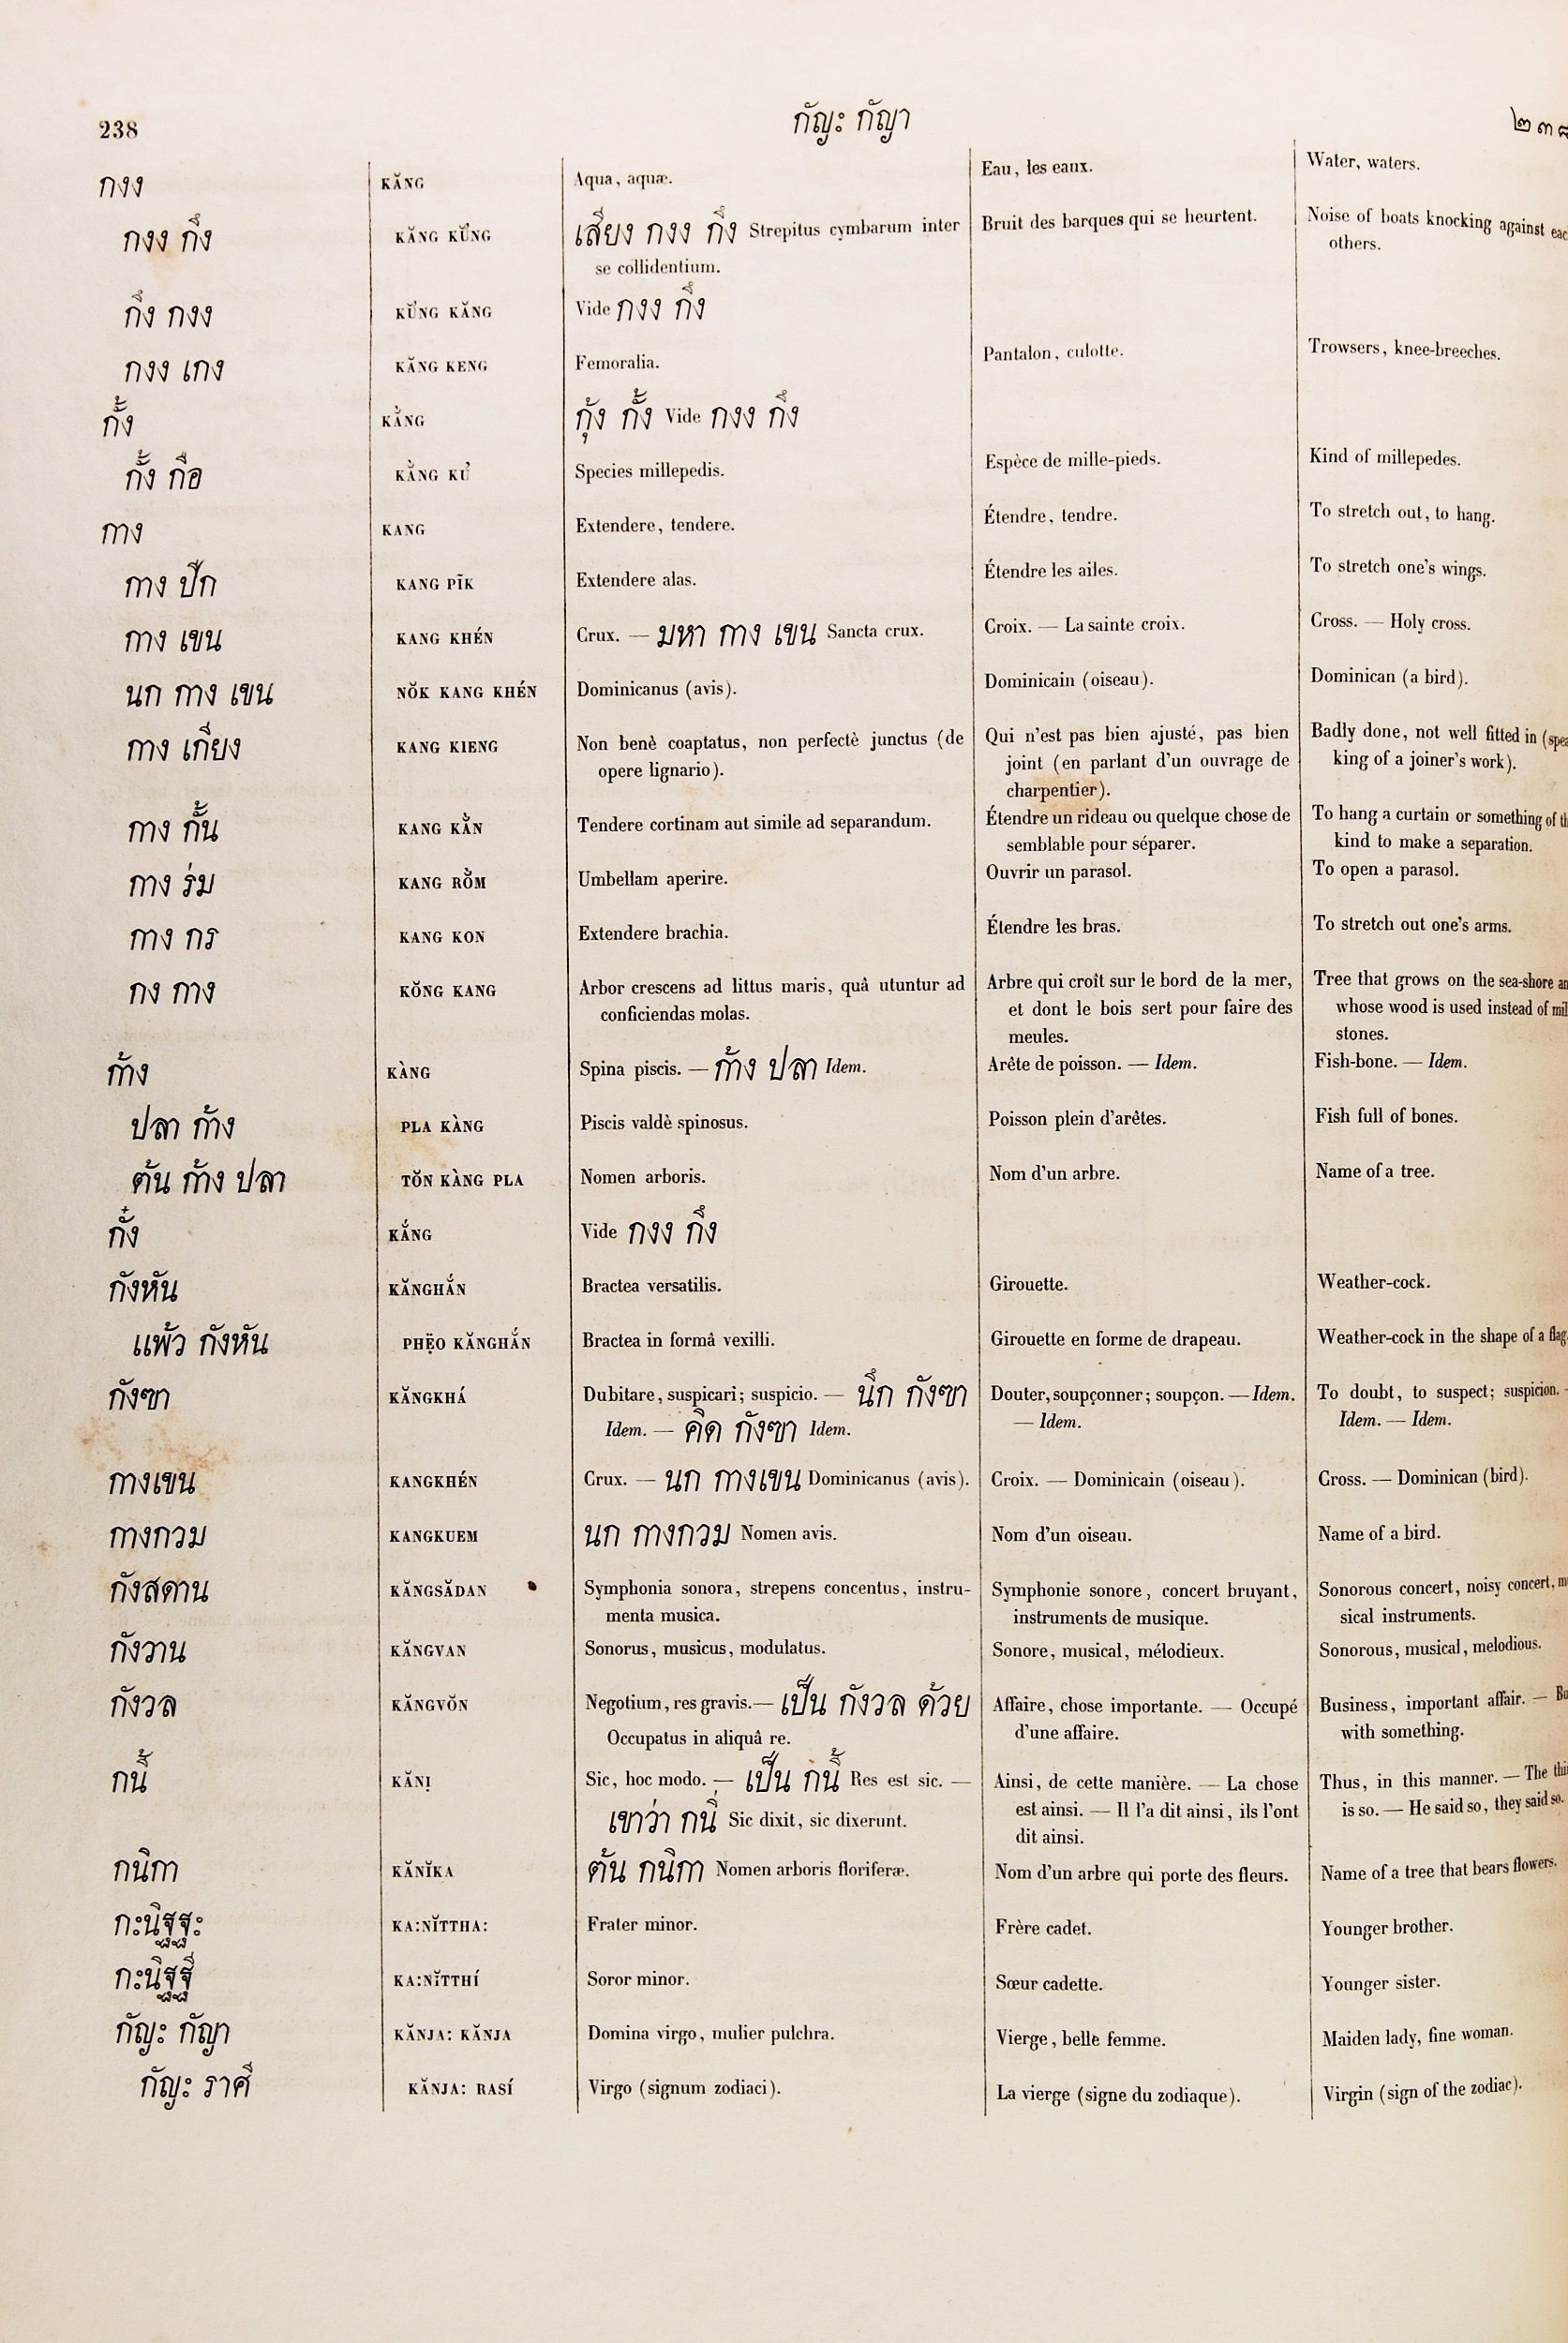 238 กัญะ กัญา ๒๓๘
กงง KĂNG Aqua, aquæ. Eau, les eaux. Water, waters.
กงง กึง KĂNG KŬNG เสียง กงง กึง Strepitus cymbarum inter Bruit des barques qui se heurtent. Noise of boats knocking against eac
se collidentium. others.
กึง กงง KŬNG KĂNG Vide กงง กึง
กงง เกง KĂNG KENG Femoralia. Pantalon, culotte. Trowsers, knee-breeches.
กั้ง KẰNG กุ้ง กั้ง Vide กงง กึง
กั้ง กือ KẰNG KU Species millepedis. Espèce de mille-pieds. Kind of millepedes.
กาง KANG Extendere, tendere. Étendre, tendre. To stretch out, to hang.
กาง ปีก KANG PĪK Extendere alas. Étendre les ailes. To stretch one's wings.
กาง เขน KANG KHÉN Crux. — มหา กาง เขน Sancta crux. Croix. — La sainte croix. Cross. — Holy cross.
นก กาง เขน NŎK KANG KHÉN Dominicanus (avis). Dominicain (oiseau). Dominican (a bird).
กาง เกียง KANG KIENG Non benè coaptatus, non perfectè junctus (de Qui n'est pas bien ajusté, pas bien Badly done, not well fitted in (spea
opere lignario). joint (en parlant d'un ouvrage de king of a joiner's work).
charpentier).
กาง กั้น KANG KẰN Tendere cortinam aut simile ad separandum. Étendre un rideau ou quelque chose de To hang a curtain or something of th
semblable pour séparer. kind to make a separation.
กาง ร่ม KANG RŎM Umbellam aperire. Ouvrir un parasol. To open a parasol.
กาง กร KANG KON Extendere brachia. Étendre les bras. To stretch out one's arms.
กง กาง KŎNG KANG Arbor crescens ad littus maris, quâ utuntur ad Arbre qui croît sur le bord de la mer, Tree that grows on the sea-shore an
conficiendas molas. et dont le bois sert pour faire des whose wood is used instead of mil
meules. stones.
ก้าง KÀNG Spina piscis. — ก้าง ปลา Idem. Arête de poisson. — Idem. Fish-bone. — Idem.
ปลา ก้าง PLA KÀNG Piscis valdè spinosus. Poisson plein d'arêtes. Fish full of bones.
ต้น ก้าง ปลา TŎN KÀNG PLA Nomen arboris. Nom d'un arbre. Name of a tree.
กั๋ง KẮNG Vide กงง กึง
กังหัน KĂNGHẮN Bractea versatilis. Girouette. Weather-cock.
แพ้ว กังหัน PHËO KĂNGHẮN Bractea in formâ vexilli. Girouette en forme de drapeau. Weather-cock in the shape of a flag.
กังฃา KĂNGKHÁ Dubitare, suspicari; suspicio. — นึก กังฃา Douter, soupçonner; soupçon. — Idem. To doubt, to suspect; suspicion. -
Idem. — คิด กังฃา Idem. — Idem. Idem. — Idem.
กางเขน KANGKHÉN Crux. — นก กางเขน Dominicanus (avis). Croix. — Dominicain (oiseau). Cross. — Dominican (bird).
กางกวม KANGKUEM นก กางกวม Nomen avis. Nom d'un oiseau. Name of a bird.
กังสดาน KĂNGSĂDAN Symphonia sonora, strepens concentus, instru- Symphonie sonore, concert bruyant, Sonorous concert, noisy concert, mu
menta musica. instruments de musique. sical instruments.
กังวาน KĂNGVAN Sonorus, musicus, modulatus. Sonore, musical, mélodieux. Sonorous, musical, melodious.
กังวล KĂNGVŎN Negotium, res gravis. — เป็น กังวล ด้วย Affaire, chose importante. — Occupé Business, important affair. — Bu
Occupatus in aliquâ re. d'une affaire. with something.
กนี้ KĂNỊ Sic, hoc modo. — เป็น กนี้ Res est sic. — Ainsi, de cette manière. — La chose Thus, in this manner. — The thin
เขาว่า กนี่ Sic dixit, sic dixerunt. est ainsi. — Il l'a dit ainsi, ils l'ont is so. — He said so, they said so.
dit ainsi.
กนิกา KĂNĬKA ต้น กนิกา Nomen arboris floriferæ. Nom d'un arbre qui porte des fleurs. Name of a tree that bears flowers.
กะนิฐฐะ KA:NĬTTHA: Frater minor. Frère cadet. Younger brother.
กะนิฐฐี KA:NĬTTHÍ Soror minor. Sœur cadette. Younger sister.
กัญะ กัญา KĂNJA: KĂNJA Domina virgo, mulier pulchra. Vierge, belle femme. Maiden lady, fine woman.
กัญะ ราศี KĂNJA: RASÍ Virgo (signum zodiaci). La vierge (signe du zodiaque). Virgin (sign of the zodiac).